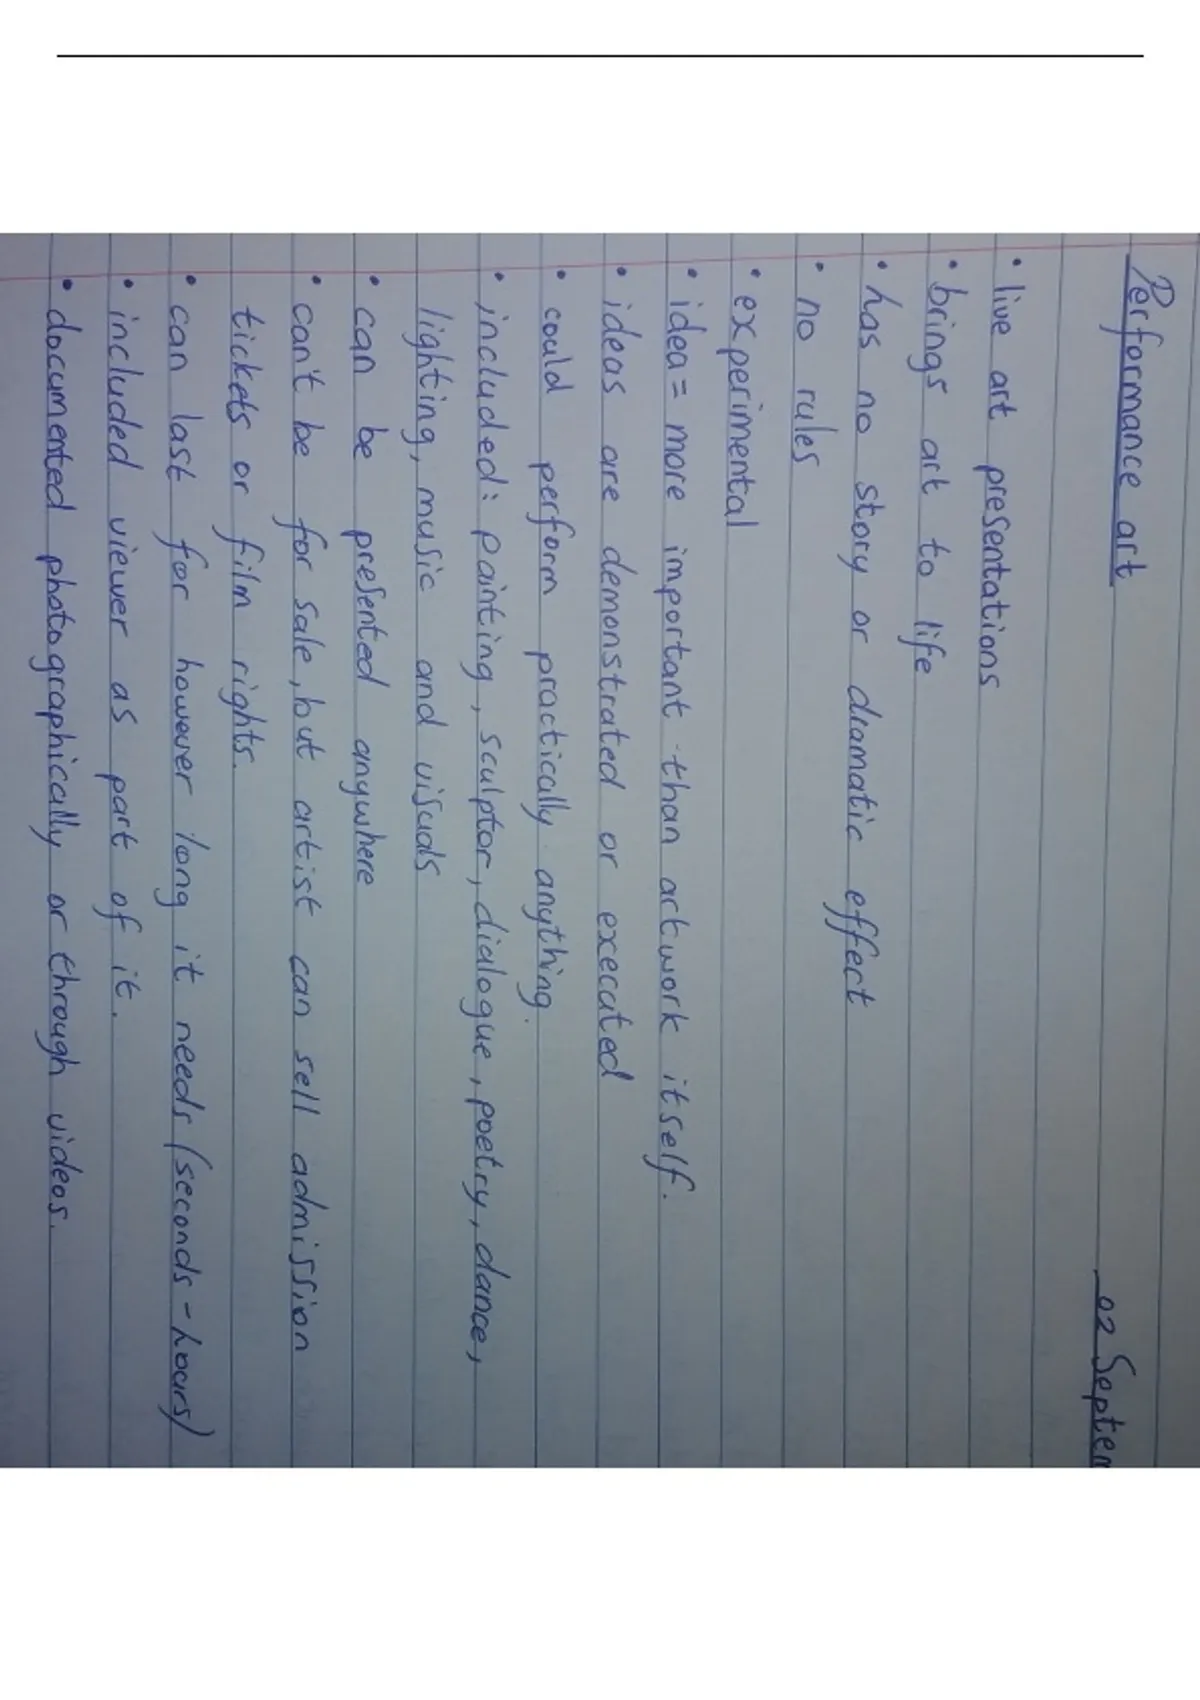 02 Septem
Performance art
• live art presentations
• brings art to life
• has no story or dramatic effect
• no rules
• experimental
• idea = more important than artwork itself.
• ideas are demonstrated or executed
• could perform practically anything.
• included: painting, sculptor, dialogue, poetry, dance,
lighting, music and visuals
• can be presented anywhere
• can't be for sale, but artist can sell admission
tickets or film rights.
• can last for however long it needs (seconds - hours)
• included viewer as part of it.
• documented photographically or through videos.